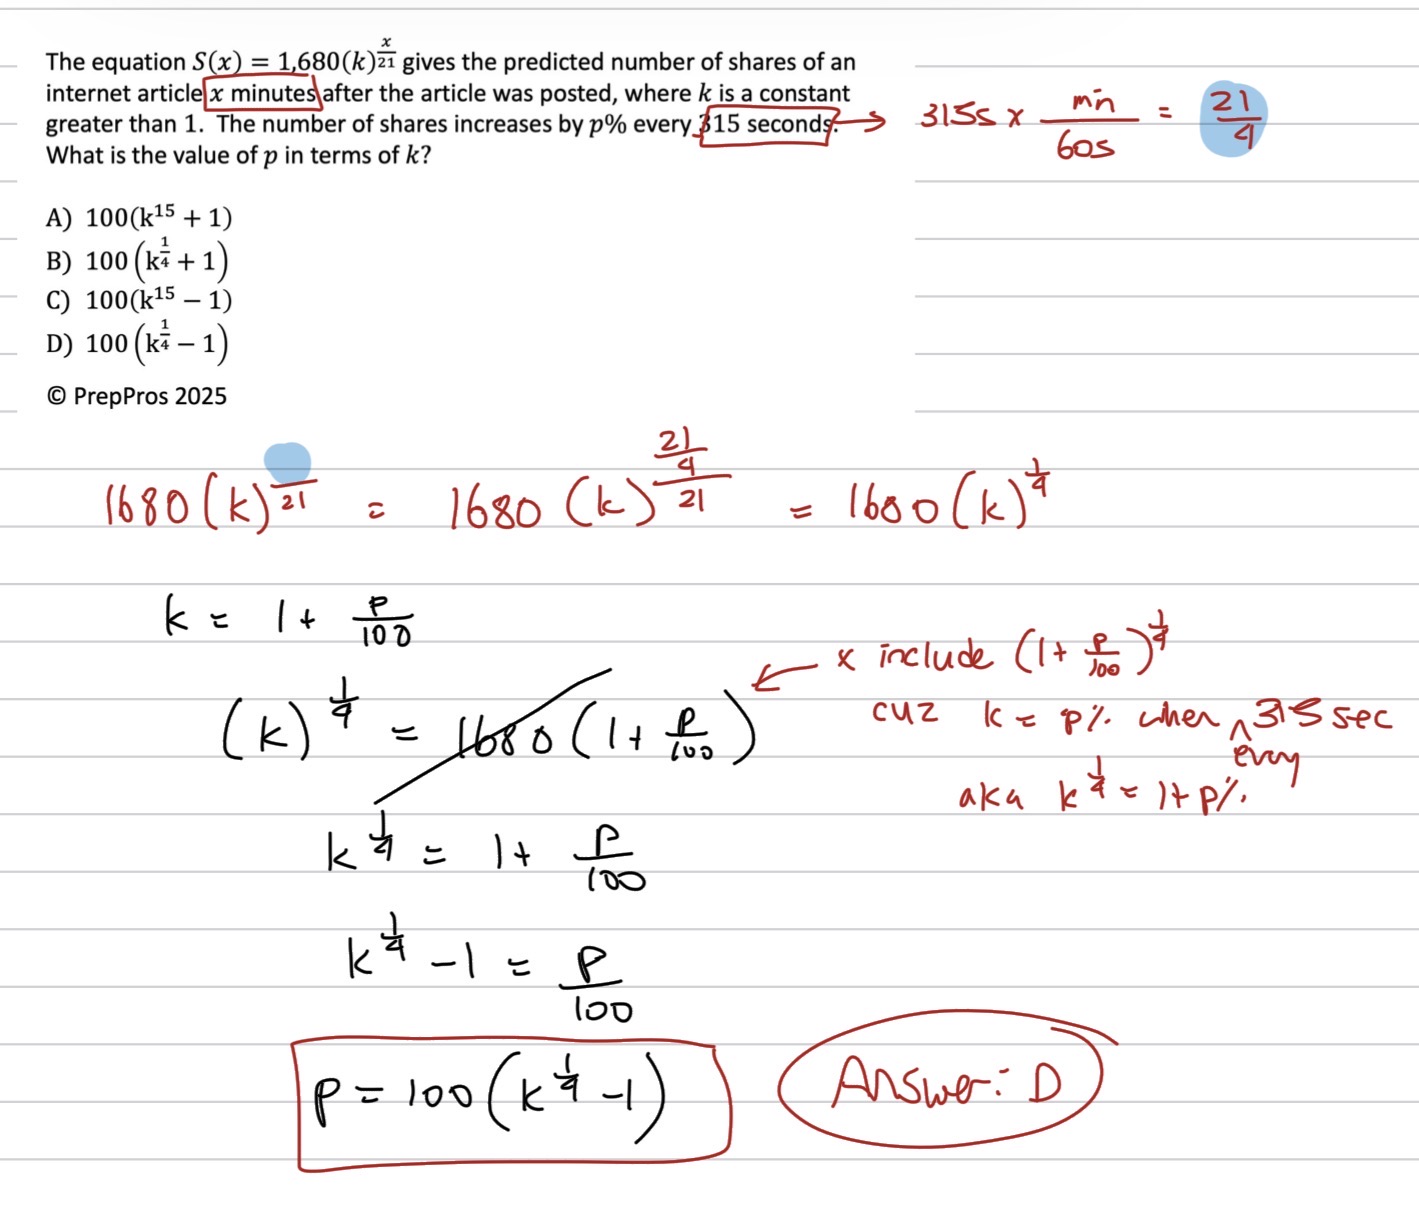 The equation S(x) = 1,680(k)^(x/21) gives the predicted number of shares of an
internet article x minutes after the article was posted, where k is a constant
greater than 1. The number of shares increases by p% every 315 seconds. → 315s × min/60s = 21/4
What is the value of p in terms of k?
A) 100(k^15 + 1)
B) 100(k^(1/4) + 1)
C) 100(k^15 − 1)
D) 100(k^(1/4) − 1)
© PrepPros 2025
1680(k)^( /21) = 1680(k)^((21/4)/21) = 1680(k)^(1/4)
k = 1 + p/100
x include (1 + p/100)^(1/4)
cuz k = p% when every 315 sec
aka k^(1/4) = 1 + p%
(k)^(1/4) = 1680(1 + p/100)
k^(1/4) = 1 + p/100
k^(1/4) − 1 = p/100
p = 100(k^(1/4) − 1)
Answer: D